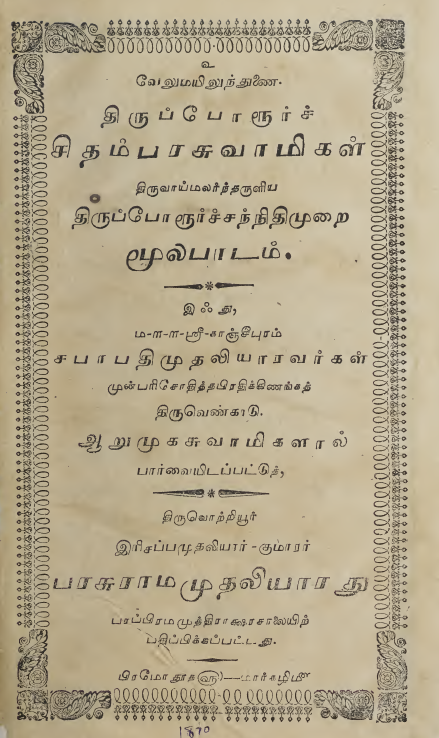 உ
வேலுமயிலுந்துணை.
திருப்போரூர்ச்
சிதம்பரசுவாமிகள்
திருவாய்மலர்ந்தருளிய
திருப்போரூர்ச்சந்நிதிமுறை
மூலபாடம்.
இஃது,
ம-ள-ள-ஸ்ரீ-காஞ்சீபுரம்
சபாபதிமுதலியாரவர்கள்
முன்பரிசோதித்தபிரதிக்கிணங்கத்
திருவெண்காடு.
ஆறுமுகசுவாமிகளால்
பார்வையிடப்பட்டுத்,
திருவொற்றியூர்
இரிசப்பமுதலியார் - குமாரர்
பரசுராமமுதலியாரது
பரப்பிரமமுத்திராக்ஷரசாலையிற்
பதிப்பிக்கப்பட்டது.
பிரமோதூத௵—மார்கழி௴
1870